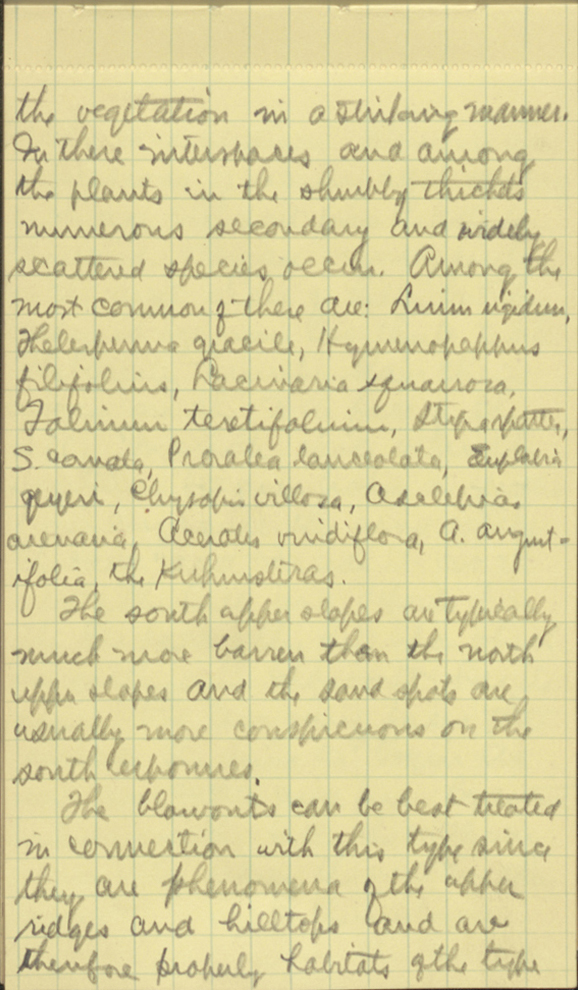 the vegetation in a striking manner.
In these interspaces and among
the plants in the shrubby thickets
numerous secondary and widely
scattered species occur. Among the
most common of these are: Linum rigidum,
Thelesperma gracile, Hymenopappus
filifolius, Lacinaria squarrosa,
Talinum teretifolium, Stipa spartea,
S. comata, Psoralea lanceolata, Euphorbia
geyeri, Chrysopsis villosa, Asclepias
arenaria, Acerates viridiflora, A. august-
ifolia, the Kuhnisteras.
The south upper slopes are typically
much more barren than the north
upper slopes and the sand spots are
usually more conspicuous on the
south exposures.
The blowouts can be best treated
in connection with this type since
they are phenomena of the upper
ridges and hilltops and are
therefore properly habitats of the type